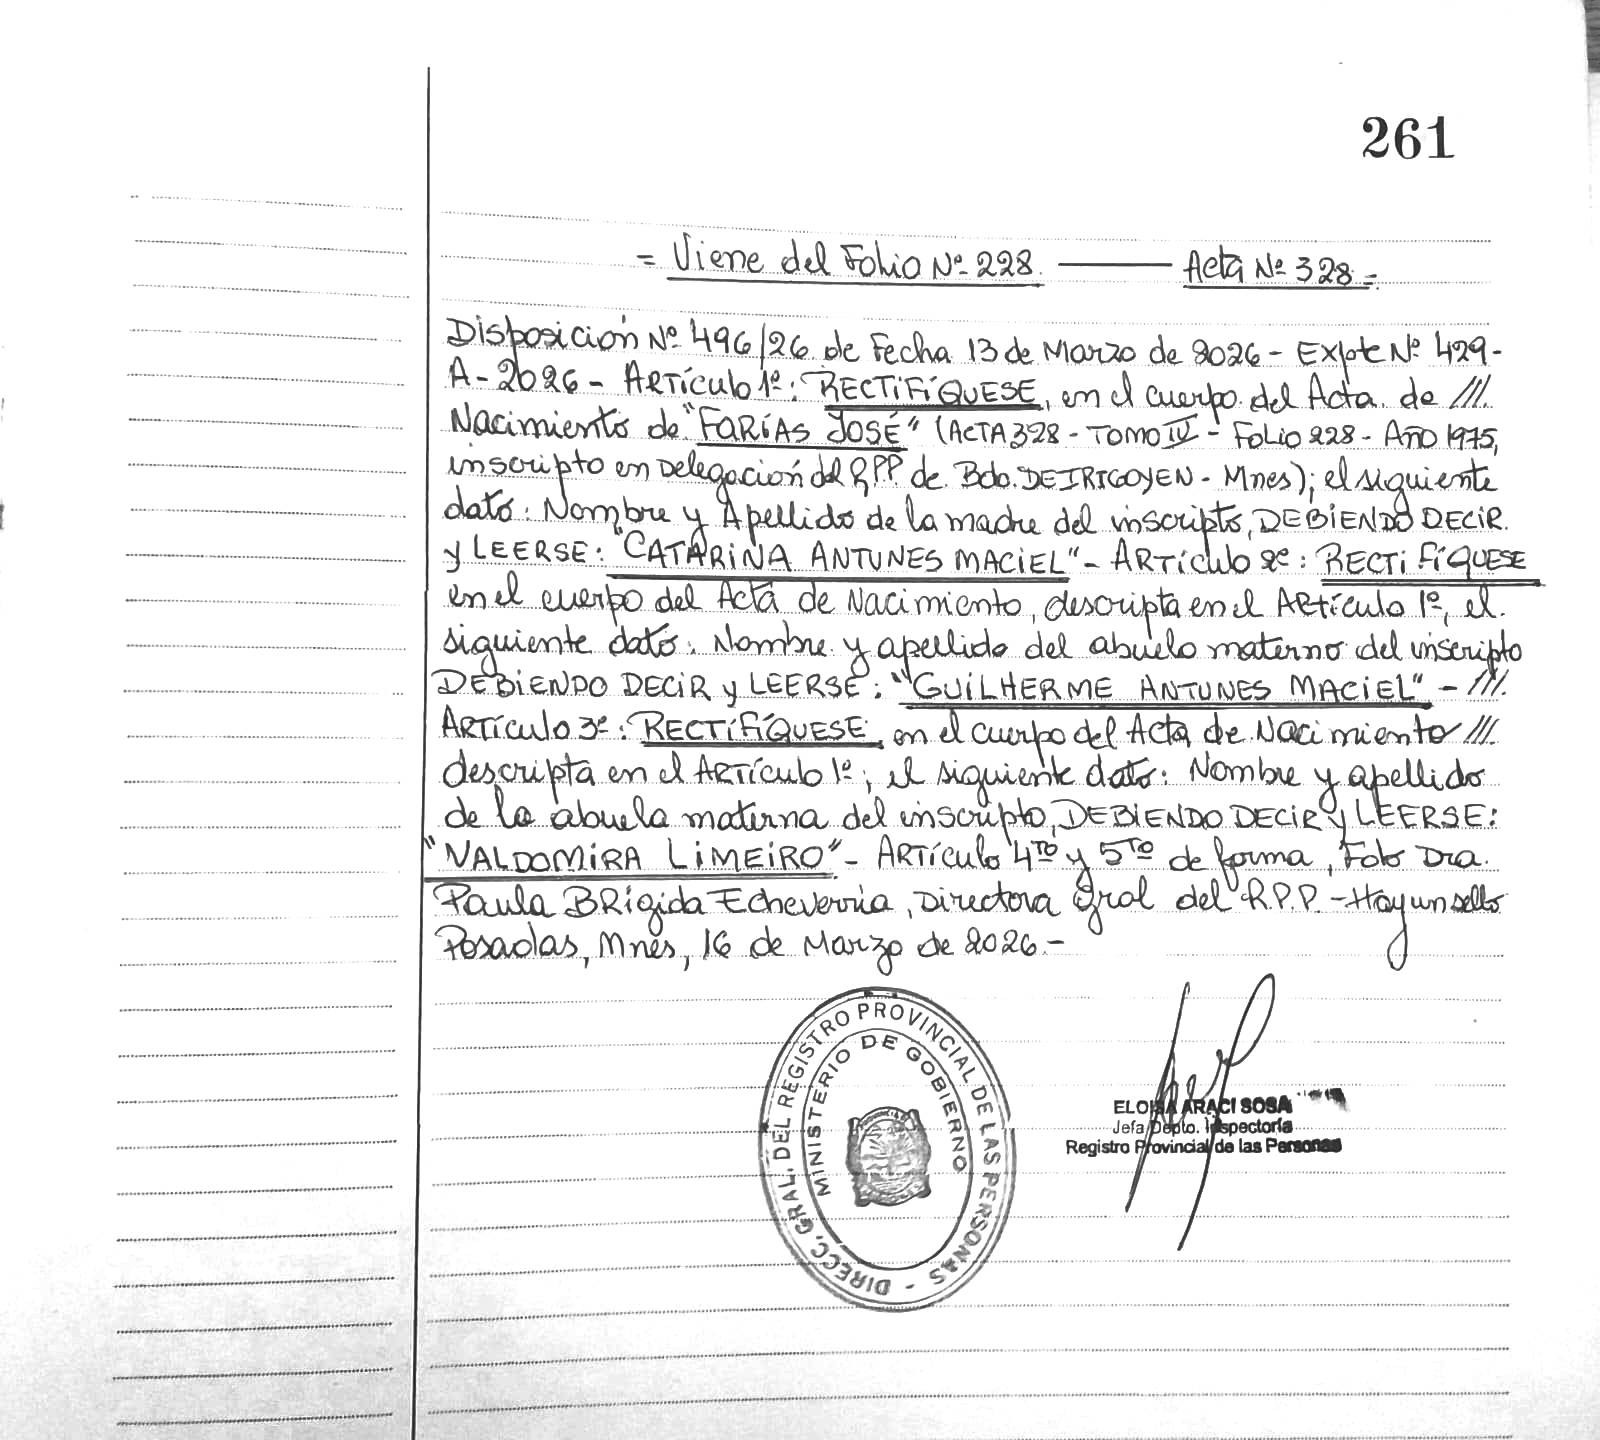 261
= Viene del Folio Nº 228. —— Acta Nº 328 =
Disposición Nº 496/26 de Fecha 13 de Marzo de 2026 - Expte Nº 429-
A-2026 - ARTÍCULO 1º: RECTIFÍQUESE, en el cuerpo del Acta de ///.
Nacimiento de "FARÍAS JOSÉ" (ACTA 328 - TOMO IV - FOLIO 228 - AÑO 1975,
inscripto en Delegación del R.P.P. de Bdo. DE IRIGOYEN - Mnes); el siguiente
dato: Nombre y Apellido de la madre del inscripto, DEBIENDO DECIR
y LEERSE: "CATARINA ANTUNES MACIEL" - ARTÍCULO 2º: RECTIFÍQUESE
en el cuerpo del Acta de Nacimiento, descripta en el ARTÍCULO 1º, el
siguiente dato: Nombre y apellido del abuelo materno del inscripto
DEBIENDO DECIR y LEERSE: "GUILHERME ANTUNES MACIEL" - ///.
ARTÍCULO 3º: RECTIFÍQUESE, en el cuerpo del Acta de Nacimiento ///.
descripta en el ARTÍCULO 1º, el siguiente dato: Nombre y apellido
de la abuela materna del inscripto, DEBIENDO DECIR y LEERSE:
"VALDOMIRA LIMEIRO" - ARTÍCULO 4TO y 5TO de forma, Fdo Dra.
Paula BRígida Echeverria, Directora Gral del R.P.P. - Hay un sello
Posadas, Mnes, 16 de Marzo de 2026.-
DIRECC. GRAL. DEL REGISTRO PROVINCIAL DE LAS PERSONAS -
MINISTERIO DE GOBIERNO
ELOISA ARACI SOSA
Jefa Depto. Inspectoría
Registro Provincial de las Personas